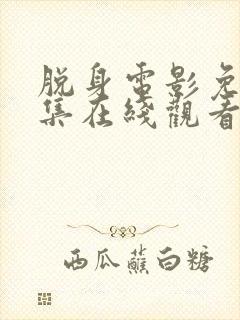 脱身電影免
集在綫觀看
西瓜蘸白糖